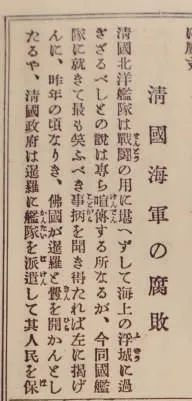 清國海軍の腐敗
清國北洋艦隊は戰鬪の用に堪へずして海上の浮城に過
ぎざるべしとの説は專ら喧傳する所なるが、今同國艦
隊に就きて最も笑ふべき事柄を聞き得たれば左に揭げ
んに、昨年の頃なりき、佛國が暹羅と釁を開かんとし
たるや、淸國政府は暹羅に艦隊を派遣して其人民を保